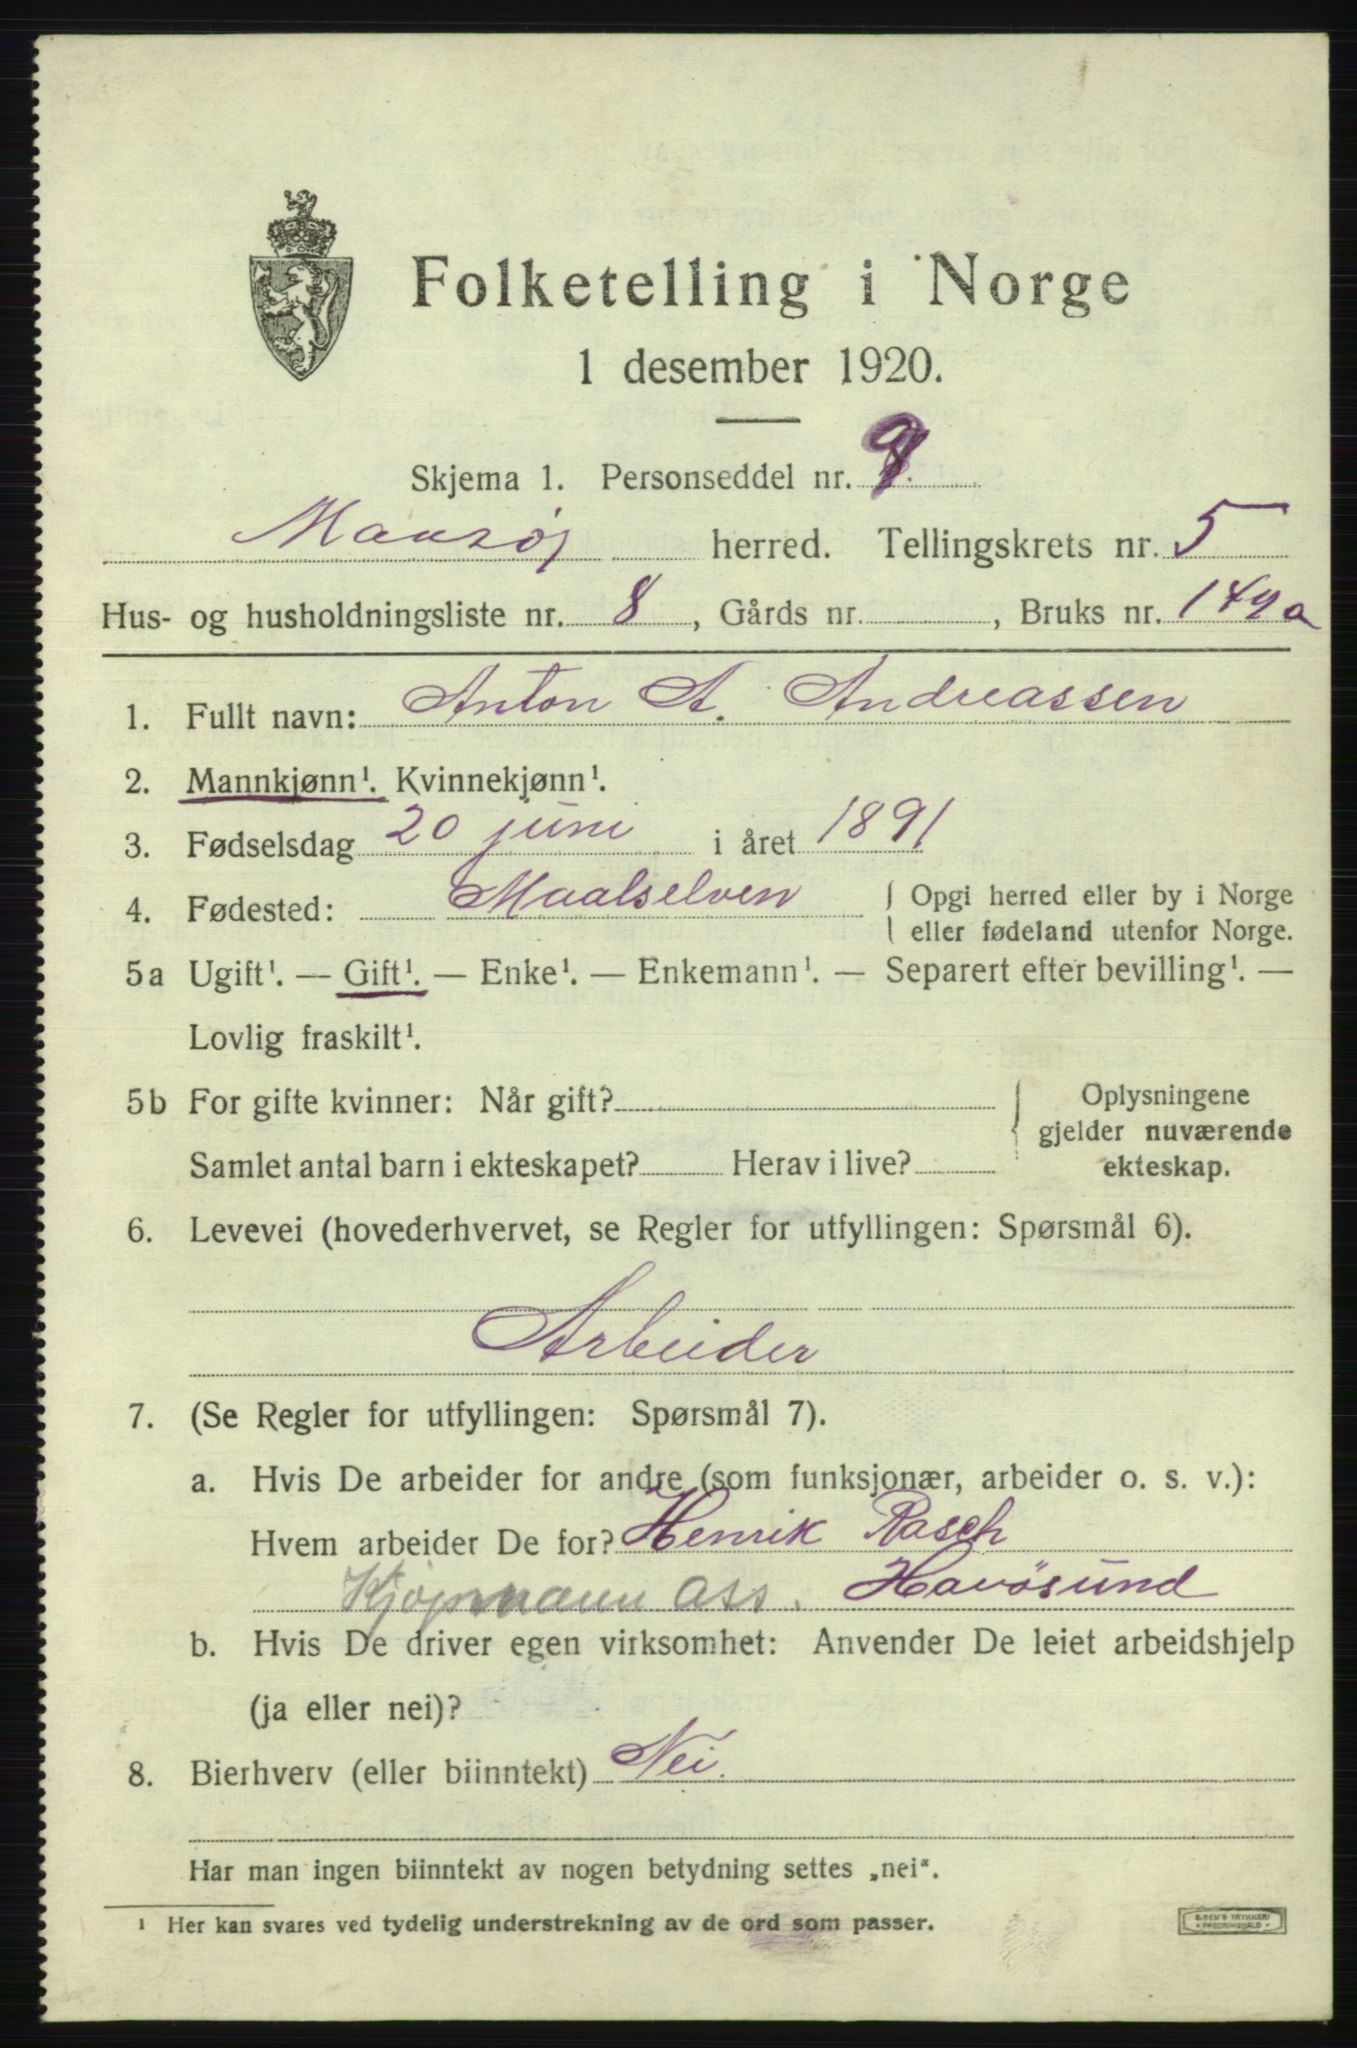 Folketelling i Norge
1 desember 1920.
Skjema 1. Personseddel nr. 9
Maasøy herred. Tellingskrets nr. 5
Hus- og husholdningsliste nr. 8, Gårds nr. , Bruks nr. 149a
1. Fullt navn: Anton A. Andreassen
2. Mannkjønn¹. Kvinnekjønn¹.
3. Fødselsdag 20 juni i året 1891
4. Fødested: Maalselven { Opgi herred eller by i Norge
eller fødeland utenfor Norge.
5a Ugift¹. — Gift¹. — Enke¹. — Enkemann¹. — Separert efter bevilling¹. —
Lovlig fraskilt¹.
5b For gifte kvinner: Når gift? { Oplysningene
gjelder nuværende
Samlet antal barn i ekteskapet? Herav i live? ekteskap.
6. Levevei (hovederhvervet, se Regler for utfyllingen: Spørsmål 6).
Arbeider
7. (Se Regler for utfyllingen: Spørsmål 7).
a. Hvis De arbeider for andre (som funksjonær, arbeider o. s. v.):
Hvem arbeider De for? Henrik Rasch
Kjøpmann ass. Havösund
b. Hvis De driver egen virksomhet: Anvender De leiet arbeidshjelp
(ja eller nei)?
8. Bierhverv (eller biinntekt) Nei.
Har man ingen biinntekt av nogen betydning settes „nei“.
¹ Her kan svares ved tydelig understrekning av de ord som passer.